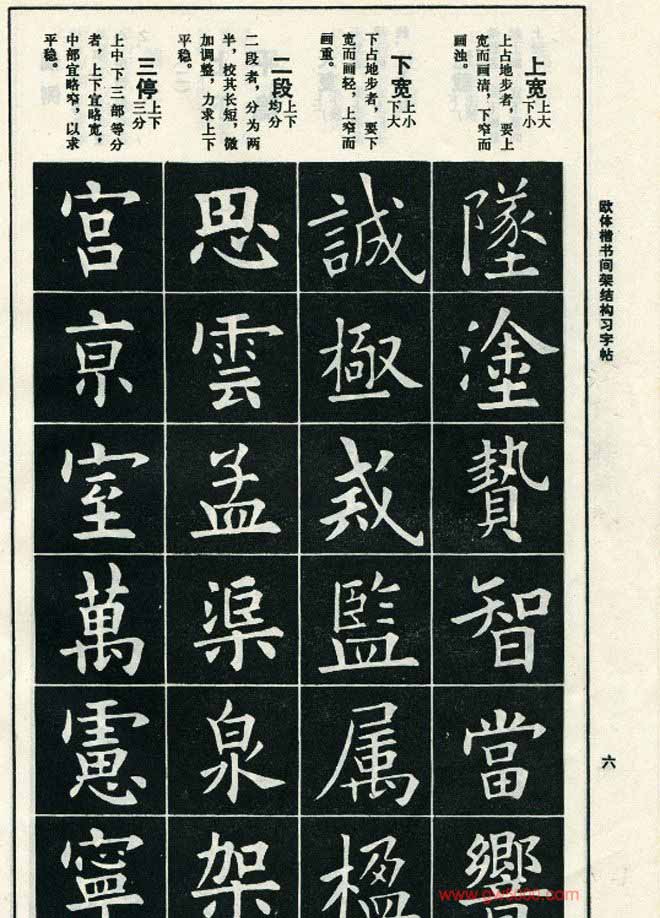 欧体楷书间架结构习字帖
六
上宽 上大下小
上占地步者，要上
宽而画清，下窄而
画浊。
墜塗贄智當
下宽 上小下大
下占地步者，要下
宽而画轻，上窄而
画重。
誠極戒監属楹
二段 上下均分
二段者，分为两
半，校其长短，微
加调整，力求上下
平稳。
思雲孟渠泉架
三停 上下三分
上中下三部等分
者，上下宜略宽，
中部宜略窄，以求
平稳。
宫亰室萬寧